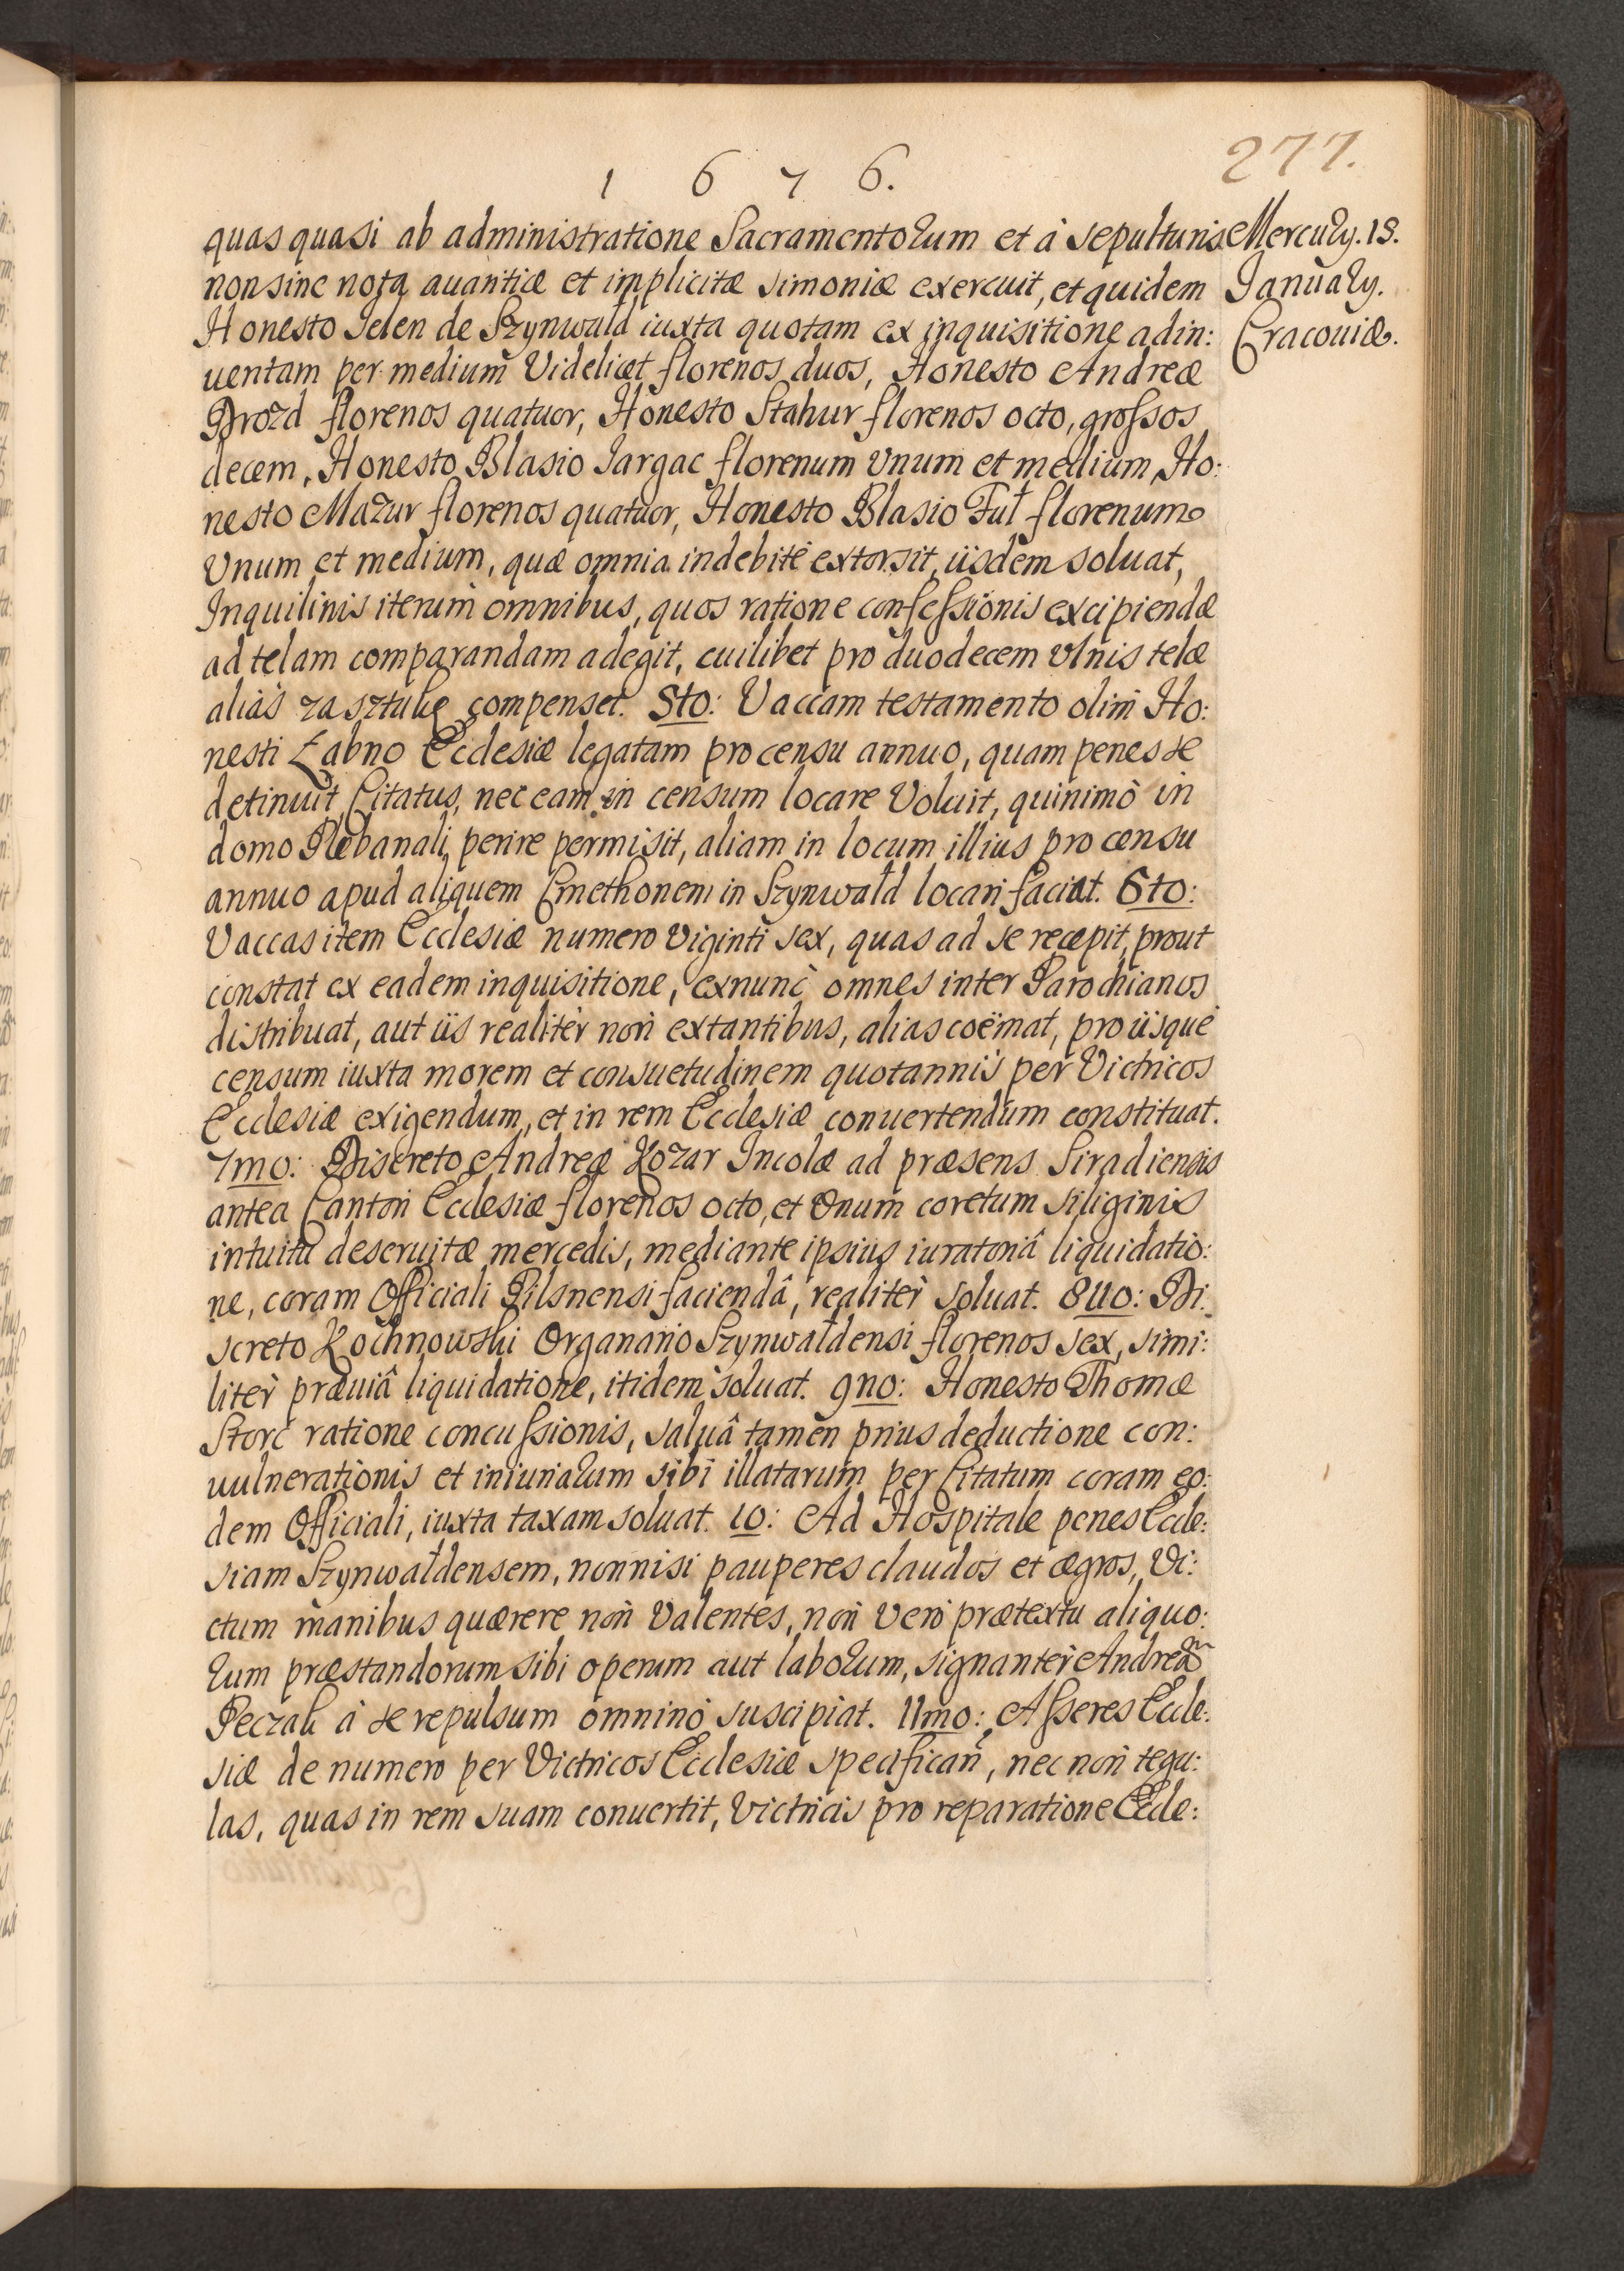 277.
1 6 7 6.
quas quasi ab administratione Sacramentorum et à sepulturis
non sine nota auaritiæ et implicitæ simoniæ exercuit, et quidem
Honesto Jelen de Szynwałd iuxta quotam ex inquisitione adin:
uentam per medium Videlicet florenos duos, Honesto Andreæ
Drozd florenos quatuor, Honesto Stahur florenos octo, grossos
decem, Honesto Blasio Jargac florenum Vnum et medium, Ho:
nesto Mazur florenos quatuor, Honesto Blasio Fuł florenum
Vnum et medium, quæ omnia indebitè extorsit, iisdem soluat,
Inquilinis iterum omnibus, quos ratione confessionis excipiendæ
ad telam comparandam adegit, cuilibet pro duodecem vlnis telæ
aliàs za sztukę compenset. 5to: Vaccam testamento olim Ho:
nesti Łabno Ecclesiæ legatam pro censu annuo, quam penes se
detinuit Citatus, nec eam in censum locare Voluit, quinimò in
domo Plebanali perire permisit, aliam in locum illius pro censu
annuo apud aliquem Cmethonem in Szynwałd locari faciat. 6to:
Vaccas item Ecclesiæ numero Viginti sex, quas ad se recepit, prout
constat ex eadem inquisitione, exnunc omnes inter Parochianos
distribuat, aut iis realitèr non extantibus, alias coëmat, pro iisque
censum iuxta morem et consuetudinem quotannis per Victricos
Ecclesiæ exigendum, et in rem Ecclesiæ conuertendum constituat.
7mo: Discreto Andreæ Kozar Incolæ ad præsens Siradiensis
antea Cantori Ecclesiæ florenos octo, et Vnum coretum siliginis
intuitu deseruitæ mercedis, mediante ipsius iuratoriâ liquidatio:
ne, coram Officiali Pilsnensi faciendâ, realitèr soluat. 8uo: Di:
screto Kochnowski Organario Szynwałdensi florenos sex, simi:
litèr præuiâ liquidatione, itidem soluat. 9no: Honesto Thomæ
Storc ratione concussionis, saluâ tamen prius deductione con:
uulnerationis et iniuriarum sibi illatarum per Citatum coram eo:
dem Officiali, iuxta taxam soluat. 10: Ad Hospitale penes Eccle:
siam Szynwałdensem, nonnisi pauperes claudos et ægros, Vi:
ctum manibus quærere non Valentes, non Verò prætextu aliquo:
rum præstandorum sibi operum aut laborum, signantèr Andream
Peczak à se repulsum omninò suscipiat. 11mo: Asseres Eccle:
siæ de numero per Victricos Ecclesiæ specifican, nec non tegu:
las, quas in rem suam conuertit, Victricis pro reparatione Eccle:
Mercury. 15.
January.
Cracouiæ.